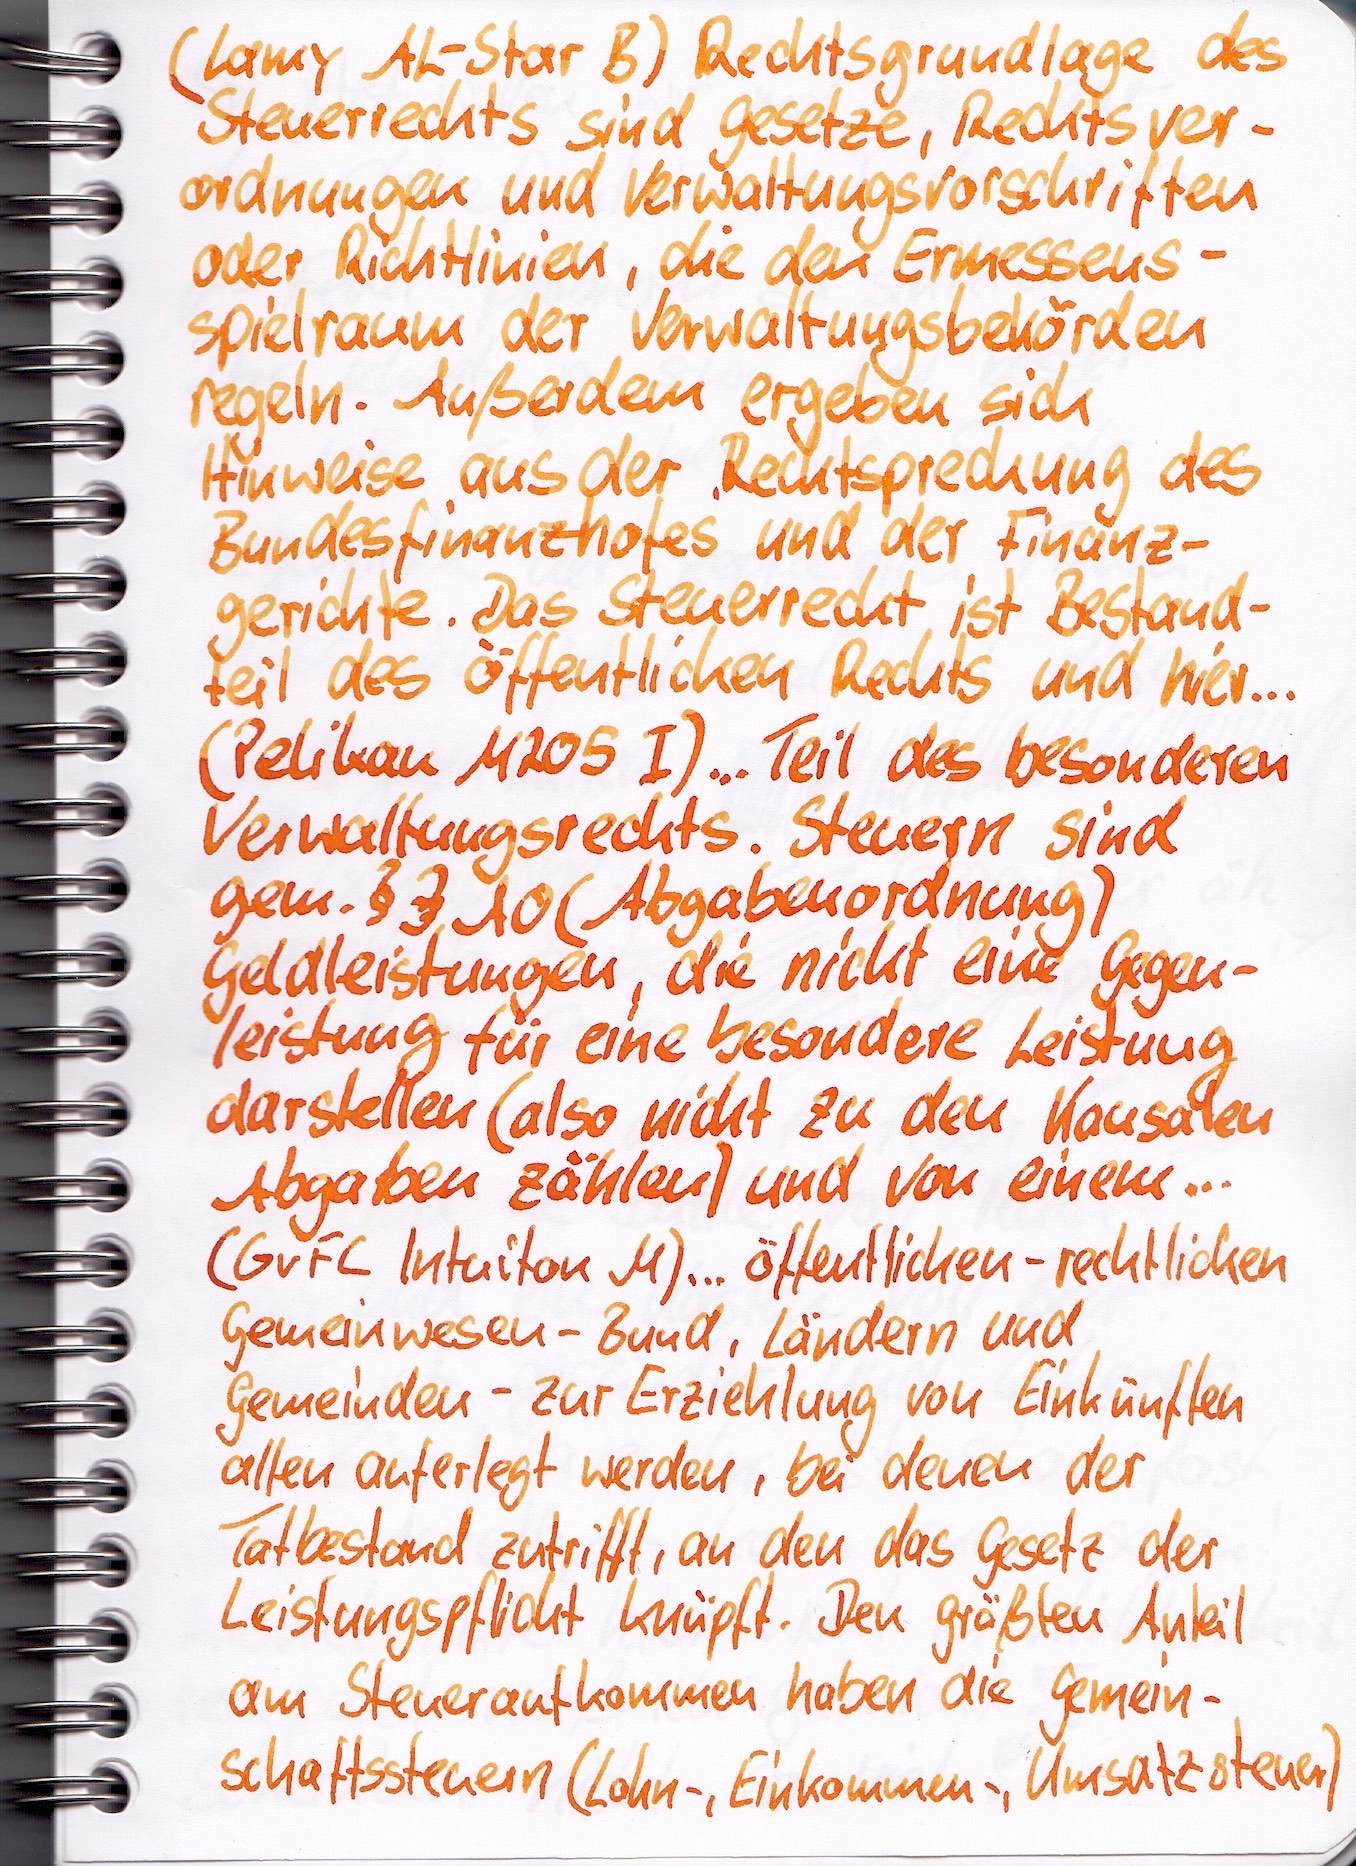 (Lamy AL-Star B) Rechtsgrundlage des
Steuerrechts sind Gesetze, Rechtsver-
ordnungen und Verwaltungsvorschriften
oder Richtlinien, die den Ermessens-
spielraum der Verwaltungsbehörden
regeln. Außerdem ergeben sich
Hinweise aus der Rechtsprechung des
Bundesfinanzhofes und der Finanz-
gerichte. Das Steuerrecht ist Bestand-
teil des öffentlichen Rechts und hier...
(Pelikan M205 I)... Teil des besonderen
Verwaltungsrechts. Steuern sind
gem. § 3 AO (Abgabenordnung)
Geldleistungen, die nicht eine Gegen-
leistung für eine besondere Leistung
darstellen (also nicht zu den Kausalen
Abgaben zählen) und von einem...
(GvFC Intuiton M)... öffentlichen-rechtlichen
Gemeinwesen - Bund, Ländern und
Gemeinden - zur Erziehlung von Einkünften
allen auferlegt werden, bei denen der
Tatbestand zutrifft, an den das Gesetz der
Leistungspflicht knüpft. Den größten Anteil
am Steueraufkommen haben die Gemein-
schaftssteuern (Lohn-, Einkommen-, Umsatzsteuer)